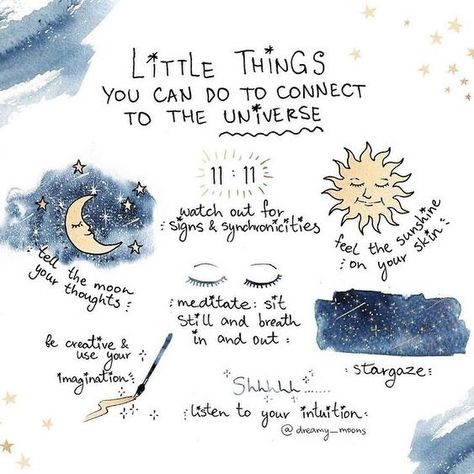 LiTTLE THiNGS
YOU CAN DO TO CONNECT
TO THE UNiVERSE
11:11
watch out for
: signs & synchronicities
feel the sunshine
: on your skin :
tell the moon
your thoughts :
meditate: sit
still and breath
in and out :
be creative &
use your
imagination:
: stargaze :
Shhhhh......
: listen to your intuition :
@dreamy_moons